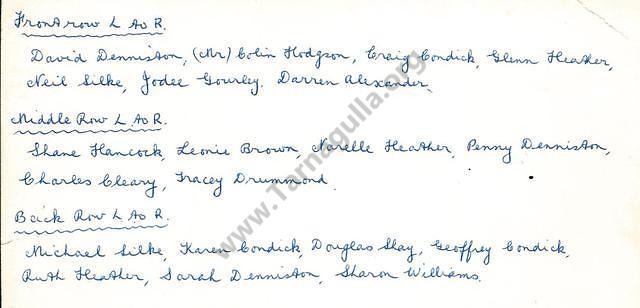 Front row L to R.
David Denniston, (Mr) Colin Hodgson, Craig Condick, Glenn Heather,
Neil Silke, Jodee Gourley. Darren Alexander.
Middle Row L to R.
Shane Hancock, Leonie Brown, Narelle Heather, Penny Denniston,
Charles Cleary, Tracey Drummond
Back Row L to R.
Michael Silke, Karen Condick, Douglas Shay, Geoffrey Condick,
Ruth Heather, Sarah Denniston, Sharon Williams.
www.Tarnagulla.org